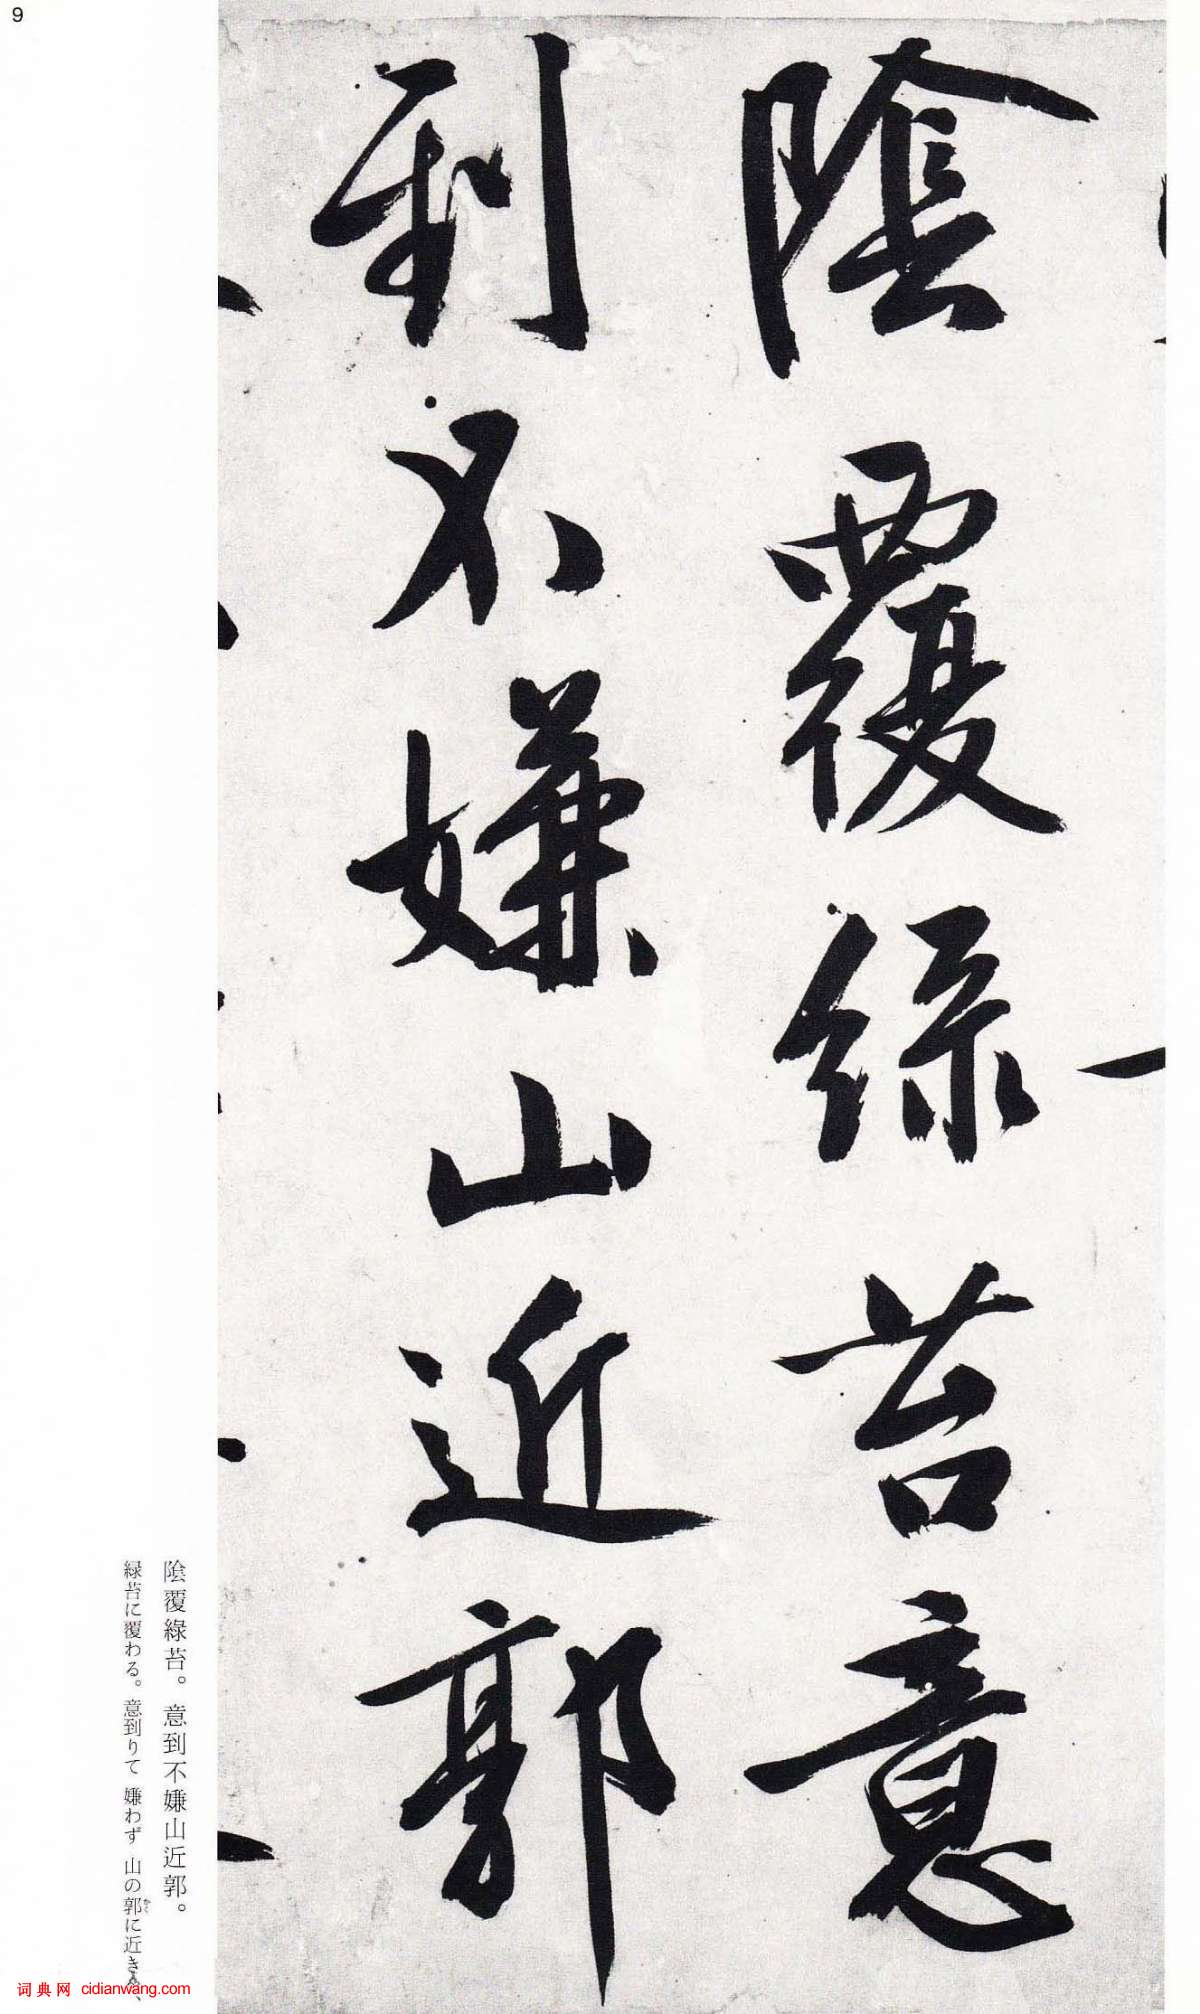 9
陰覆綠苔意
到不嫌山近郭
陰覆綠苔。意到不嫌山近郭。
緑苔に覆わる。意到りて 嫌わず 山の郭に近き
かく
词典网 cidianwang.com